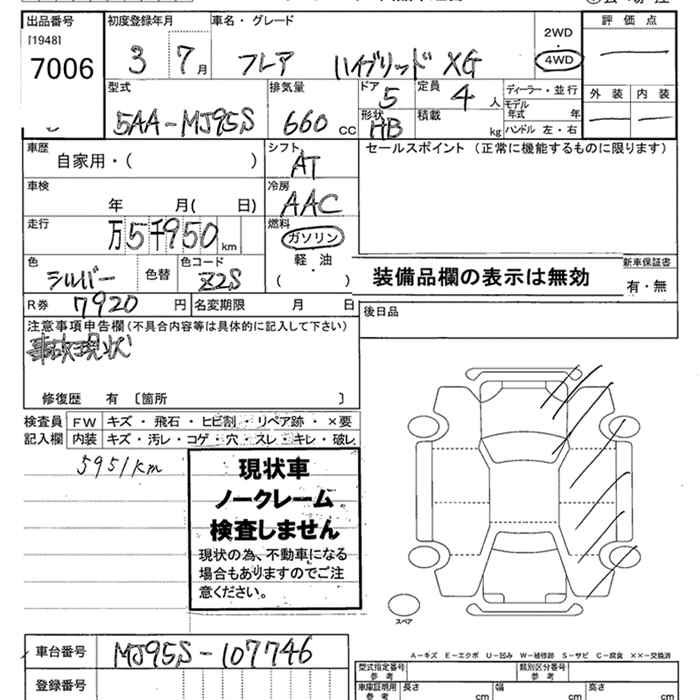 出品番号 初度登録年月 車名・グレード 2WD 評価点
[1948] 7006 3 7月 フレア ハイブリッド XG 4WD
型式 排気量 ドア 5 定員 4人 ディーラー・並行 外装 内装
5AA-MJ95S 660cc 形状 HB 積載 kg モデル年式 年
ハンドル 左・右
車歴 自家用・( ) シフト AT セールスポイント(正常に機能するものに限ります)
車検 年 月( 日) 冷房 AAC
走行 万5千950km 燃料 ガソリン
軽油
( )
色 シルバー 色替 色コード Z2S 装備品欄の表示は無効 新車保証書
有・無
R券 7920円 名変期限 月 日 後日品
注意事項申告欄(不具合内容等は具体的に記入して下さい)
事故現状
修復歴 有〔箇所 〕
検査員 FW キズ・飛石・ヒビ割・リペア跡・×要
記入欄 内装 キズ・汚レ・コゲ・穴・スレ・キレ・破レ
5951km
現状車
ノークレーム
検査しません
現状の為、不動車になる
場合もありますのでご注
意ください。
スペア
A-キズ E-エクボ U-凹み W-補修跡 S-サビ C-腐食 ××-交換済
車台番号 MJ95S-107746
型式指定番号 参考 類別区分番号 参考
登録番号
車庫証明用 参考 長さ cm 幅 cm 高さ cm